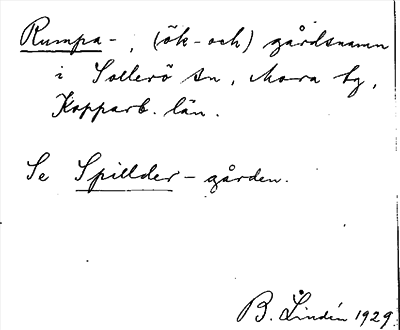 Rumpa-, (ök- och) gårdsnamn
i Sollerö sn, Mora tg,
Kopparb. län.
Se Spillder-gården.
B. Lindén 1929.